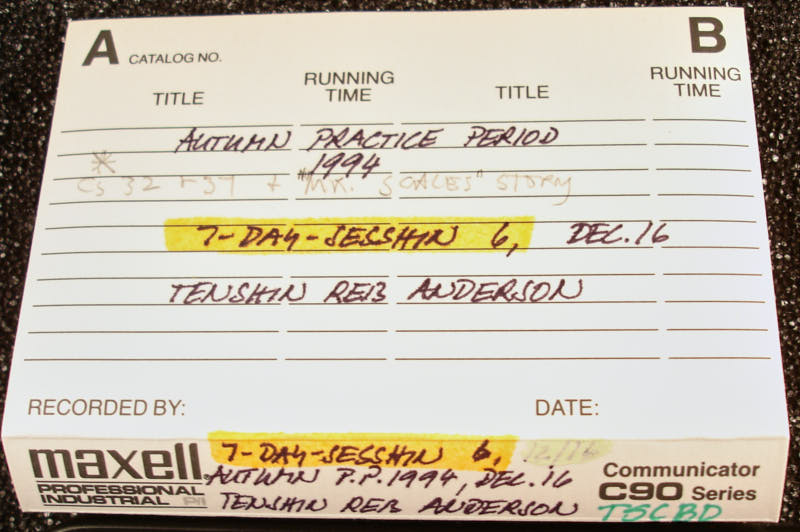 A CATALOG NO. B
TITLE RUNNING TIME TITLE RUNNING TIME
AUTUMN PRACTICE PERIOD
1994
* Cs 32 + 37 + "MR. SCALES" STORY
7-DAY-SESSHIN 6, DEC. 16
TENSHIN REB ANDERSON
RECORDED BY: DATE:
maxell 7-DAY-SESSHIN 6, 12/16
PROFESSIONAL AUTUMN P.P. 1994, DEC. 16 Communicator
INDUSTRIAL TENSHIN REB ANDERSON C90 Series
TSCBD